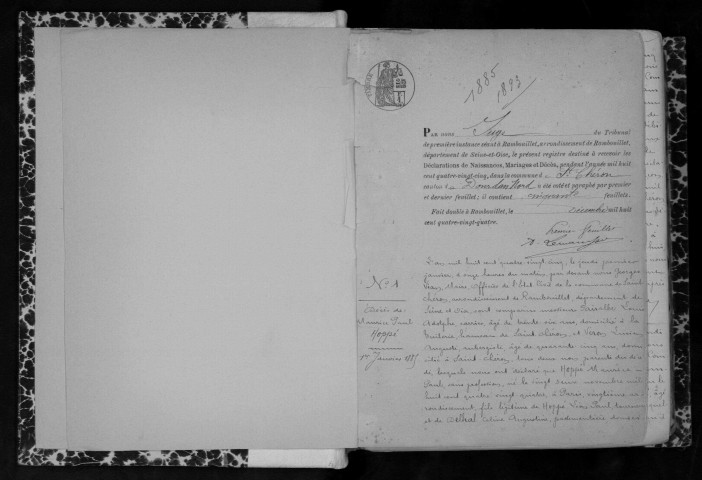 1885
1893
Par nous Juge du Tribunal
de première instance séant à Rambouillet, arrondissement de Rambouillet,
département de Seine-et-Oise, le présent registre destiné à recevoir les
Déclarations de Naissances, Mariages et Décès, pendant l'année mil huit
cent quatre-vingt-cinq, dans la commune d St Chéron
canton d Dourdan Nord a été coté et paraphé par premier
et dernier feuillet; il contient cinquante feuillets.
Fait double à Rambouillet, le décembre mil huit
cent quatre-vingt-quatre.
Premier feuillet
N° 1
Décès de
Maurice Paul
Hoppé
1er Janvier 1885
L'an mil huit cent quatre vingt cinq, le jeudi premier
janvier, à onze heures du matin, par devant nous Georges
Maire, Officier de l'Etat Civil de la commune de Saint
chéron, arrondissement de Rambouillet, département de
Seine et Oise, sont comparus messieurs Louis
Adolphe, carrier, âgé de trente six ans, domicilié à la
hameau de Saint Chéron, et
Auguste, aubergiste, âgé de quarante cinq ans, domi
cilié à Saint Chéron, tous deux non parents du décé
dé, lesquels nous ont déclaré que Hoppé Maurice
Paul, sans profession, né le vingt deux novembre mil
huit cent quatre vingt quatre, à Paris, vingtième ar
rondissement, fils légitime de Hoppé Léon Paul,
et de Céline Augustine,